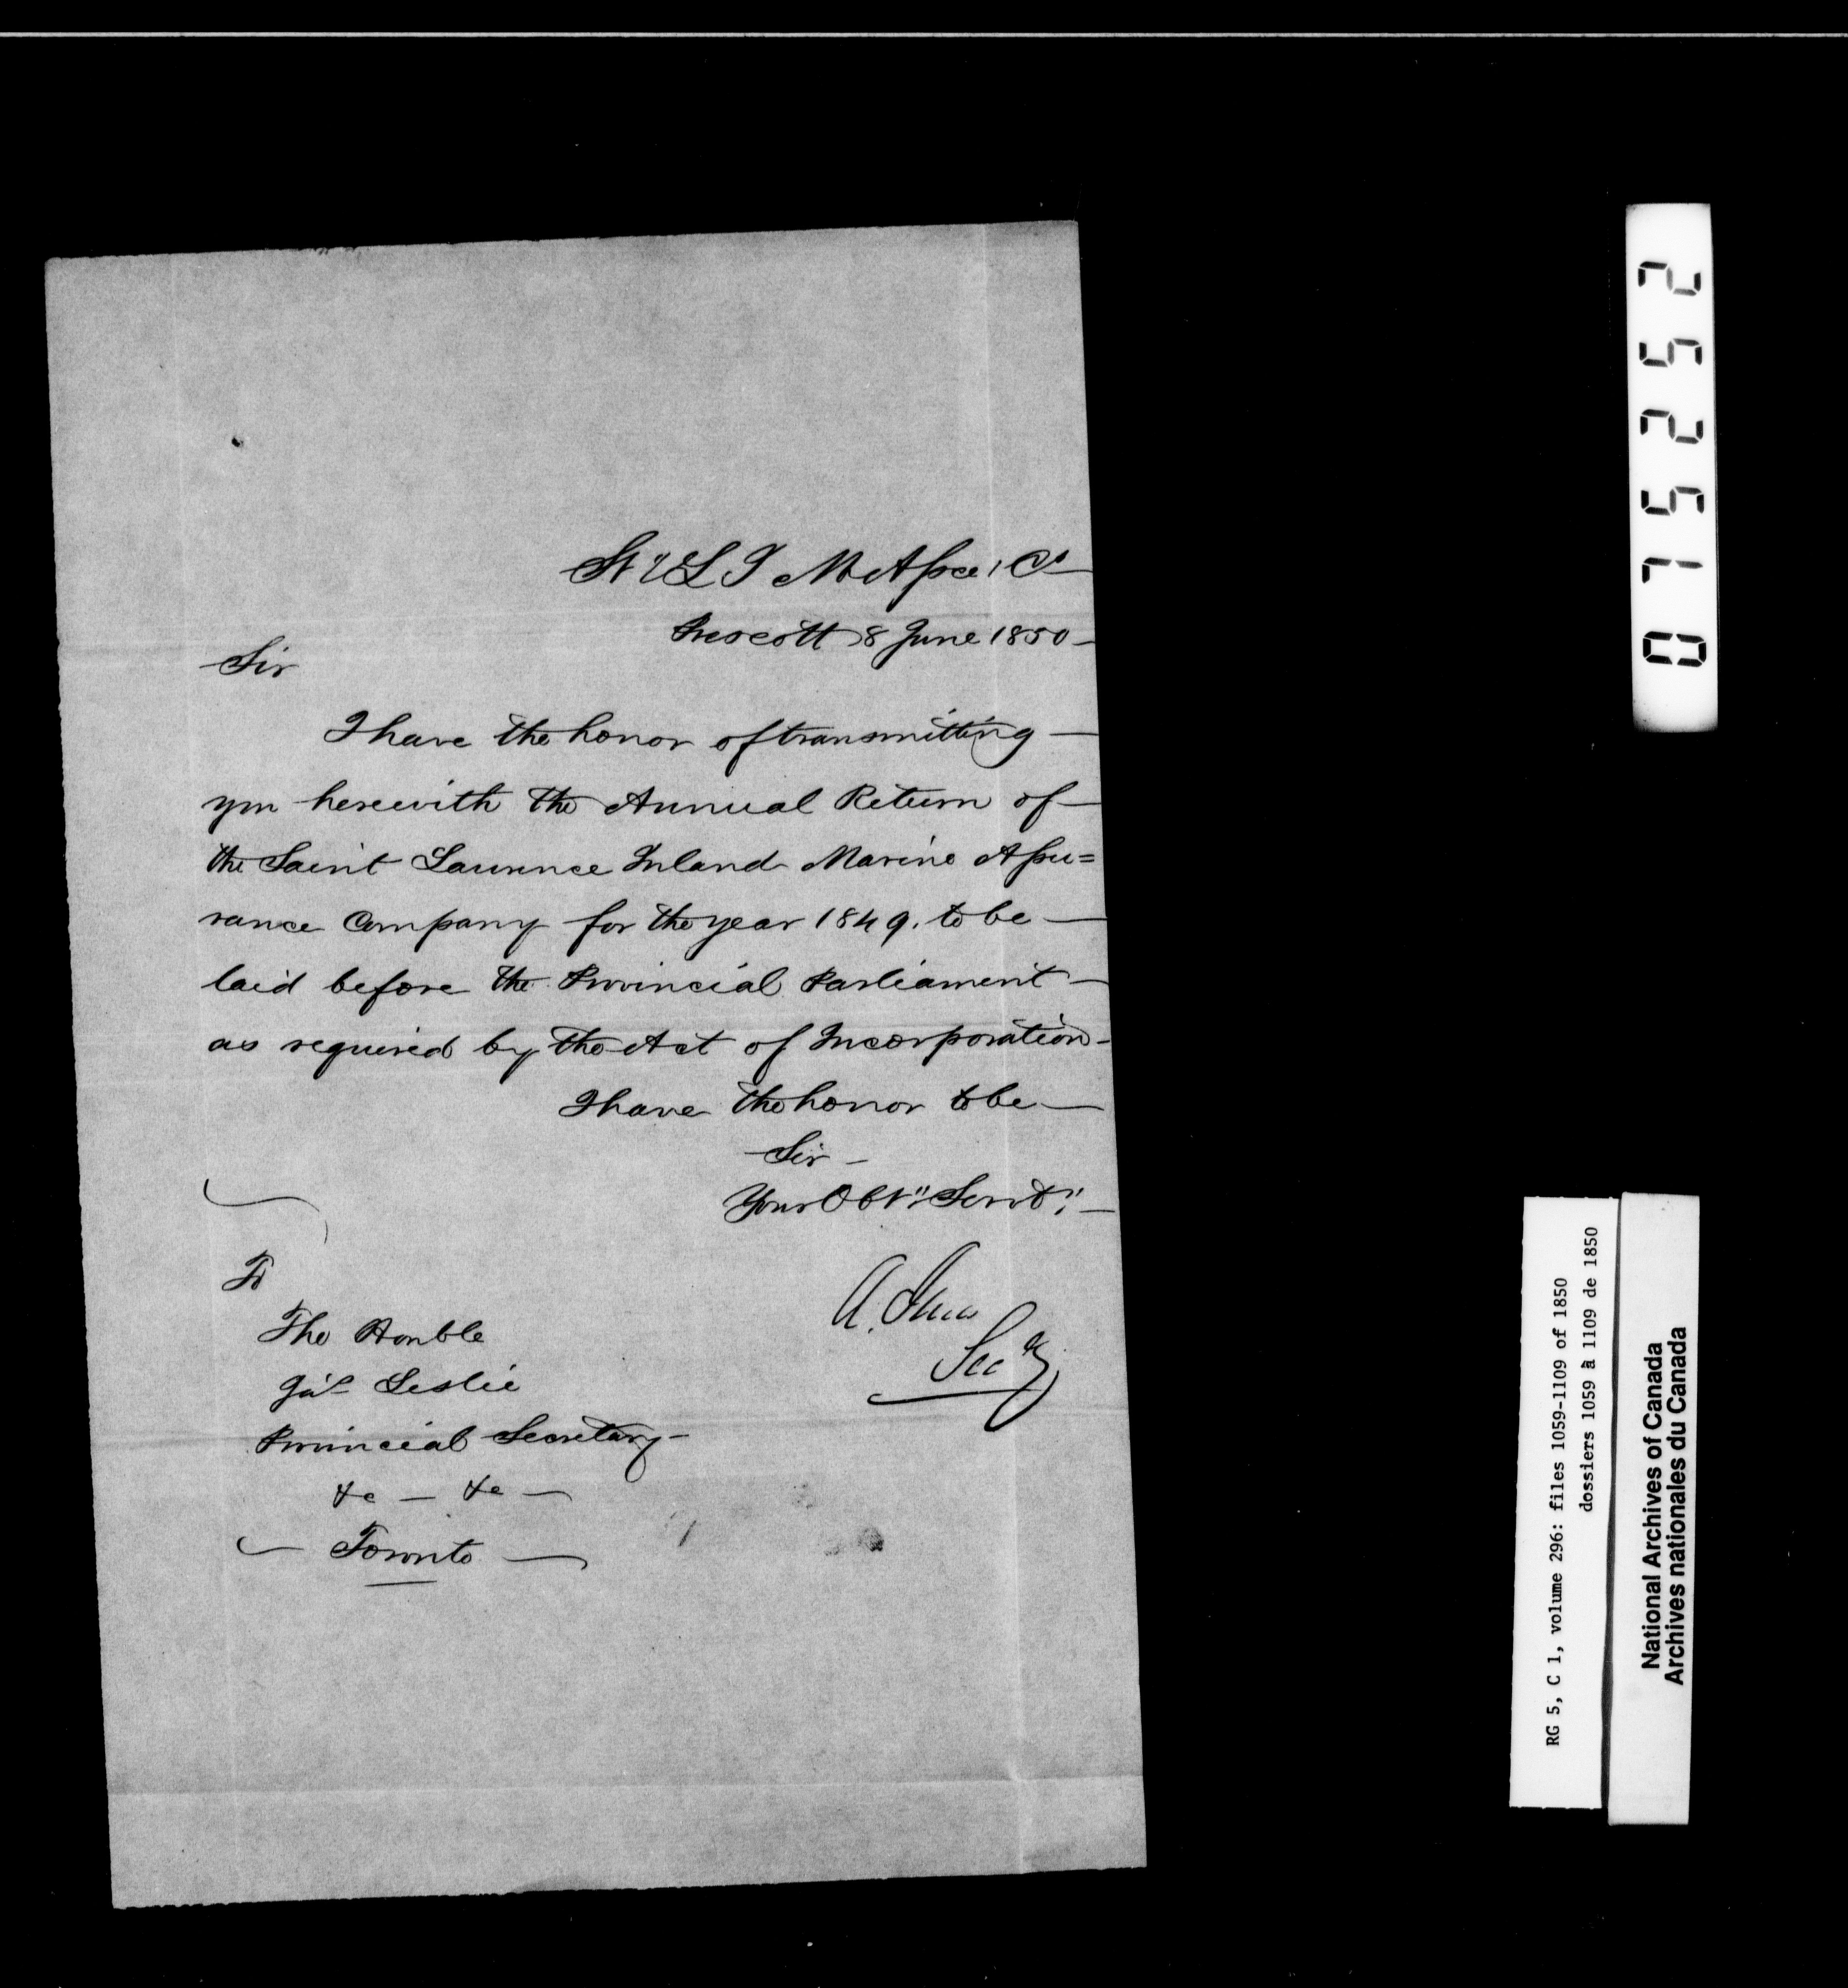 St L I M Assce Co
Prescott 8 June 1850
Sir
I have the honor of transmitting
you herewith the Annual Return of
the Saint Lawrence Inland Marine Assu=
rance Company for the year 1849. to be
laid before the Provincial Parliament
as required by the Act of Incorporation
I have the honor to be
Sir
Your Obt" Servt"
A.
Secy
To
The Honble
Jas Leslie
Provincial Secretary
&c — &c —
Toronto
075252
RG 5, C 1, volume 296: files 1059-1109 of 1850
dossiers 1059 à 1109 de 1850
National Archives of Canada
Archives nationales du Canada